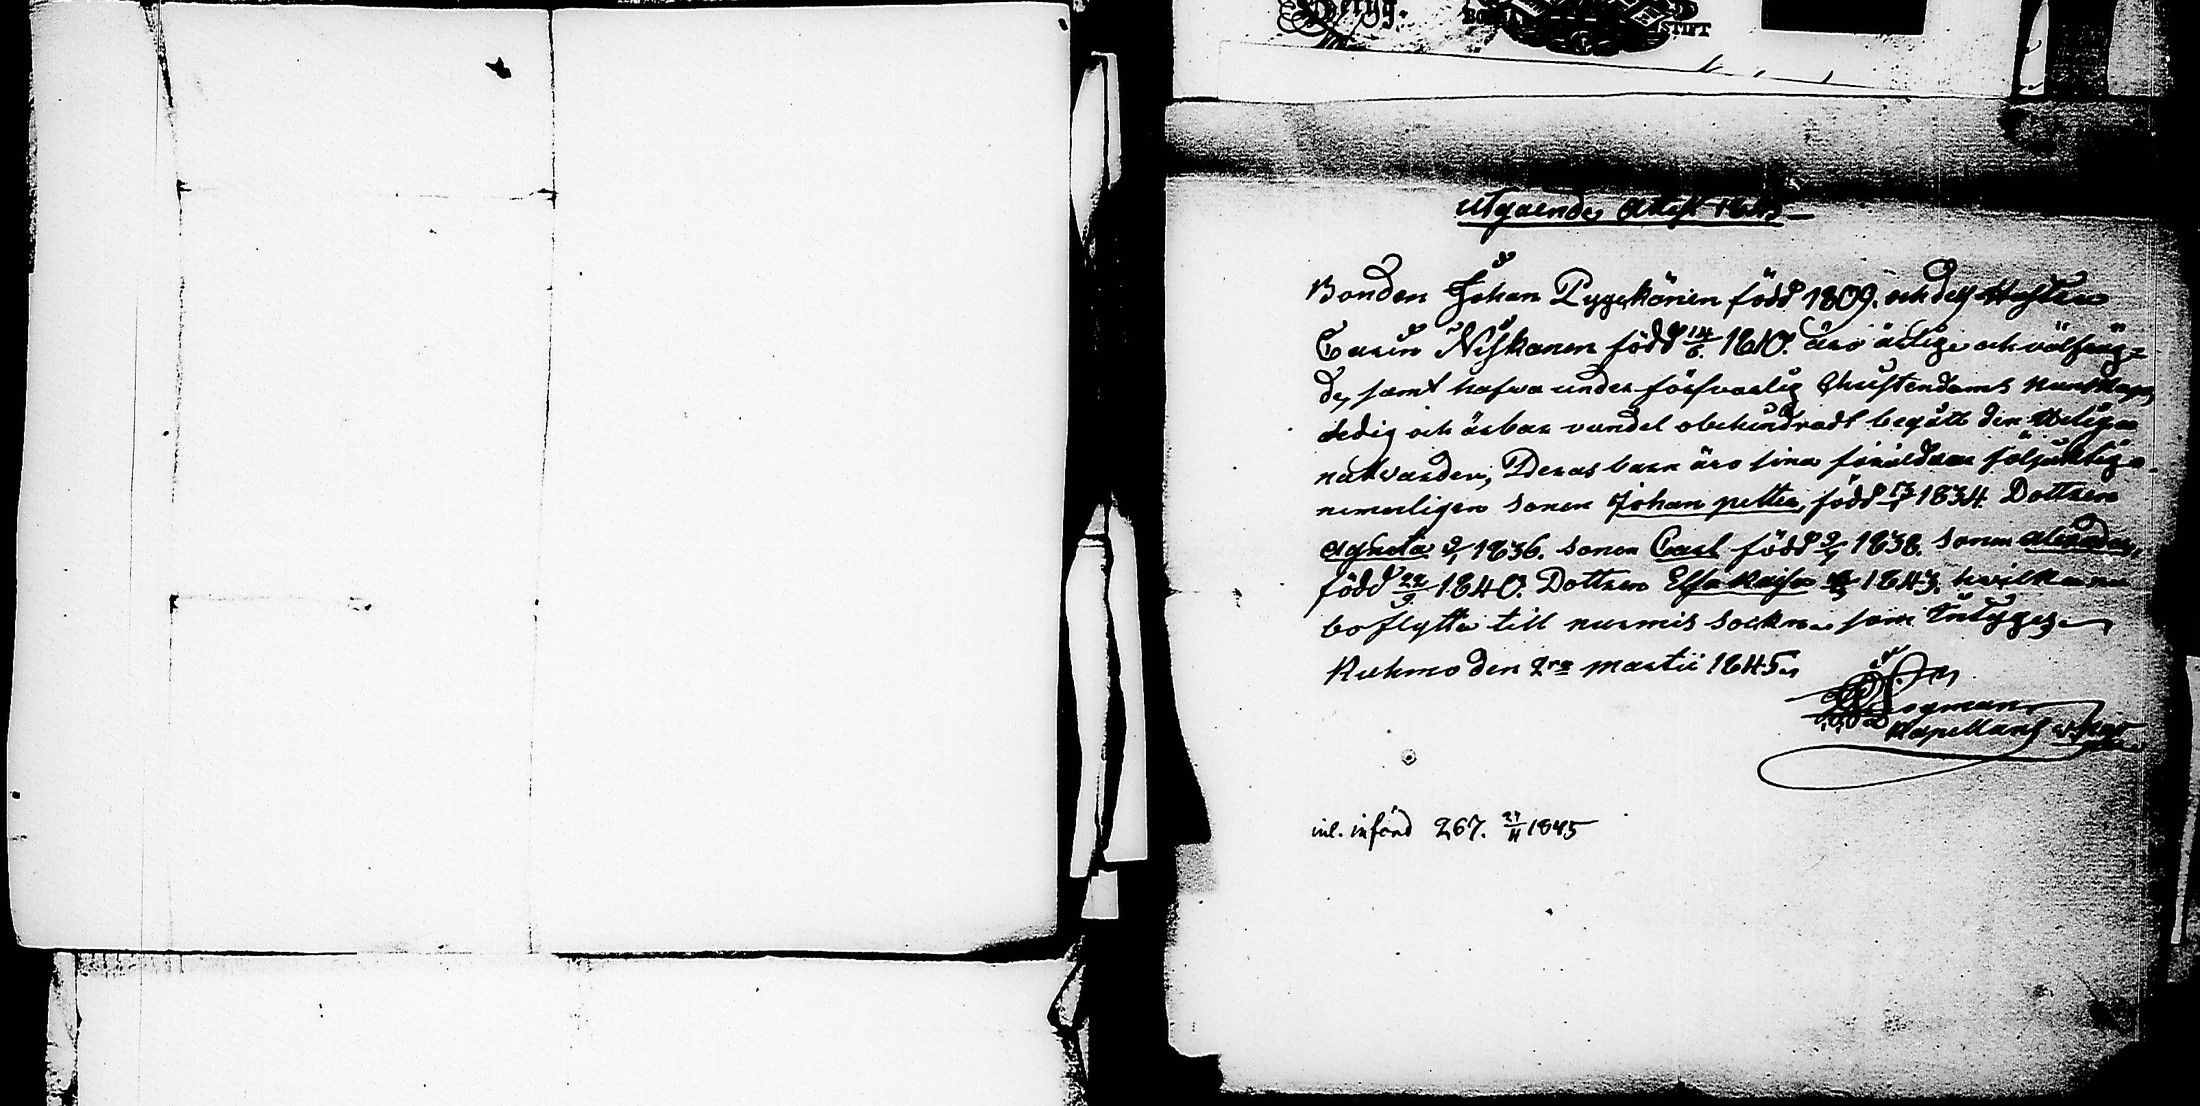 Borgå
STIFT
Utgående Attest 1845
Bonden Johan Pyyckönen född 1809. och dess Hustru
Carin Niskanen född 14/6. 1810. äro ärlige och välfräg=
de, samt hafwa under försvarlig Christendoms kunskap,
dedig och ärbar vandel obehindradt begått den Heliga
nattvarden, Deras barn äro sina föräldrar följaktiga
nemmligen sonen Johan petter, född 1834. Dottren
Agneta 1836. sonen Carl född 1838. sonen Alexander,
född 22/9. 1840. Dottren Elsa Kaisa 1843. hwilka nu
boflytta till nurmis sockn som Intygges
Kuhmo den 2ra martii 1845.
Kapellans
inl. införd 267. 1845